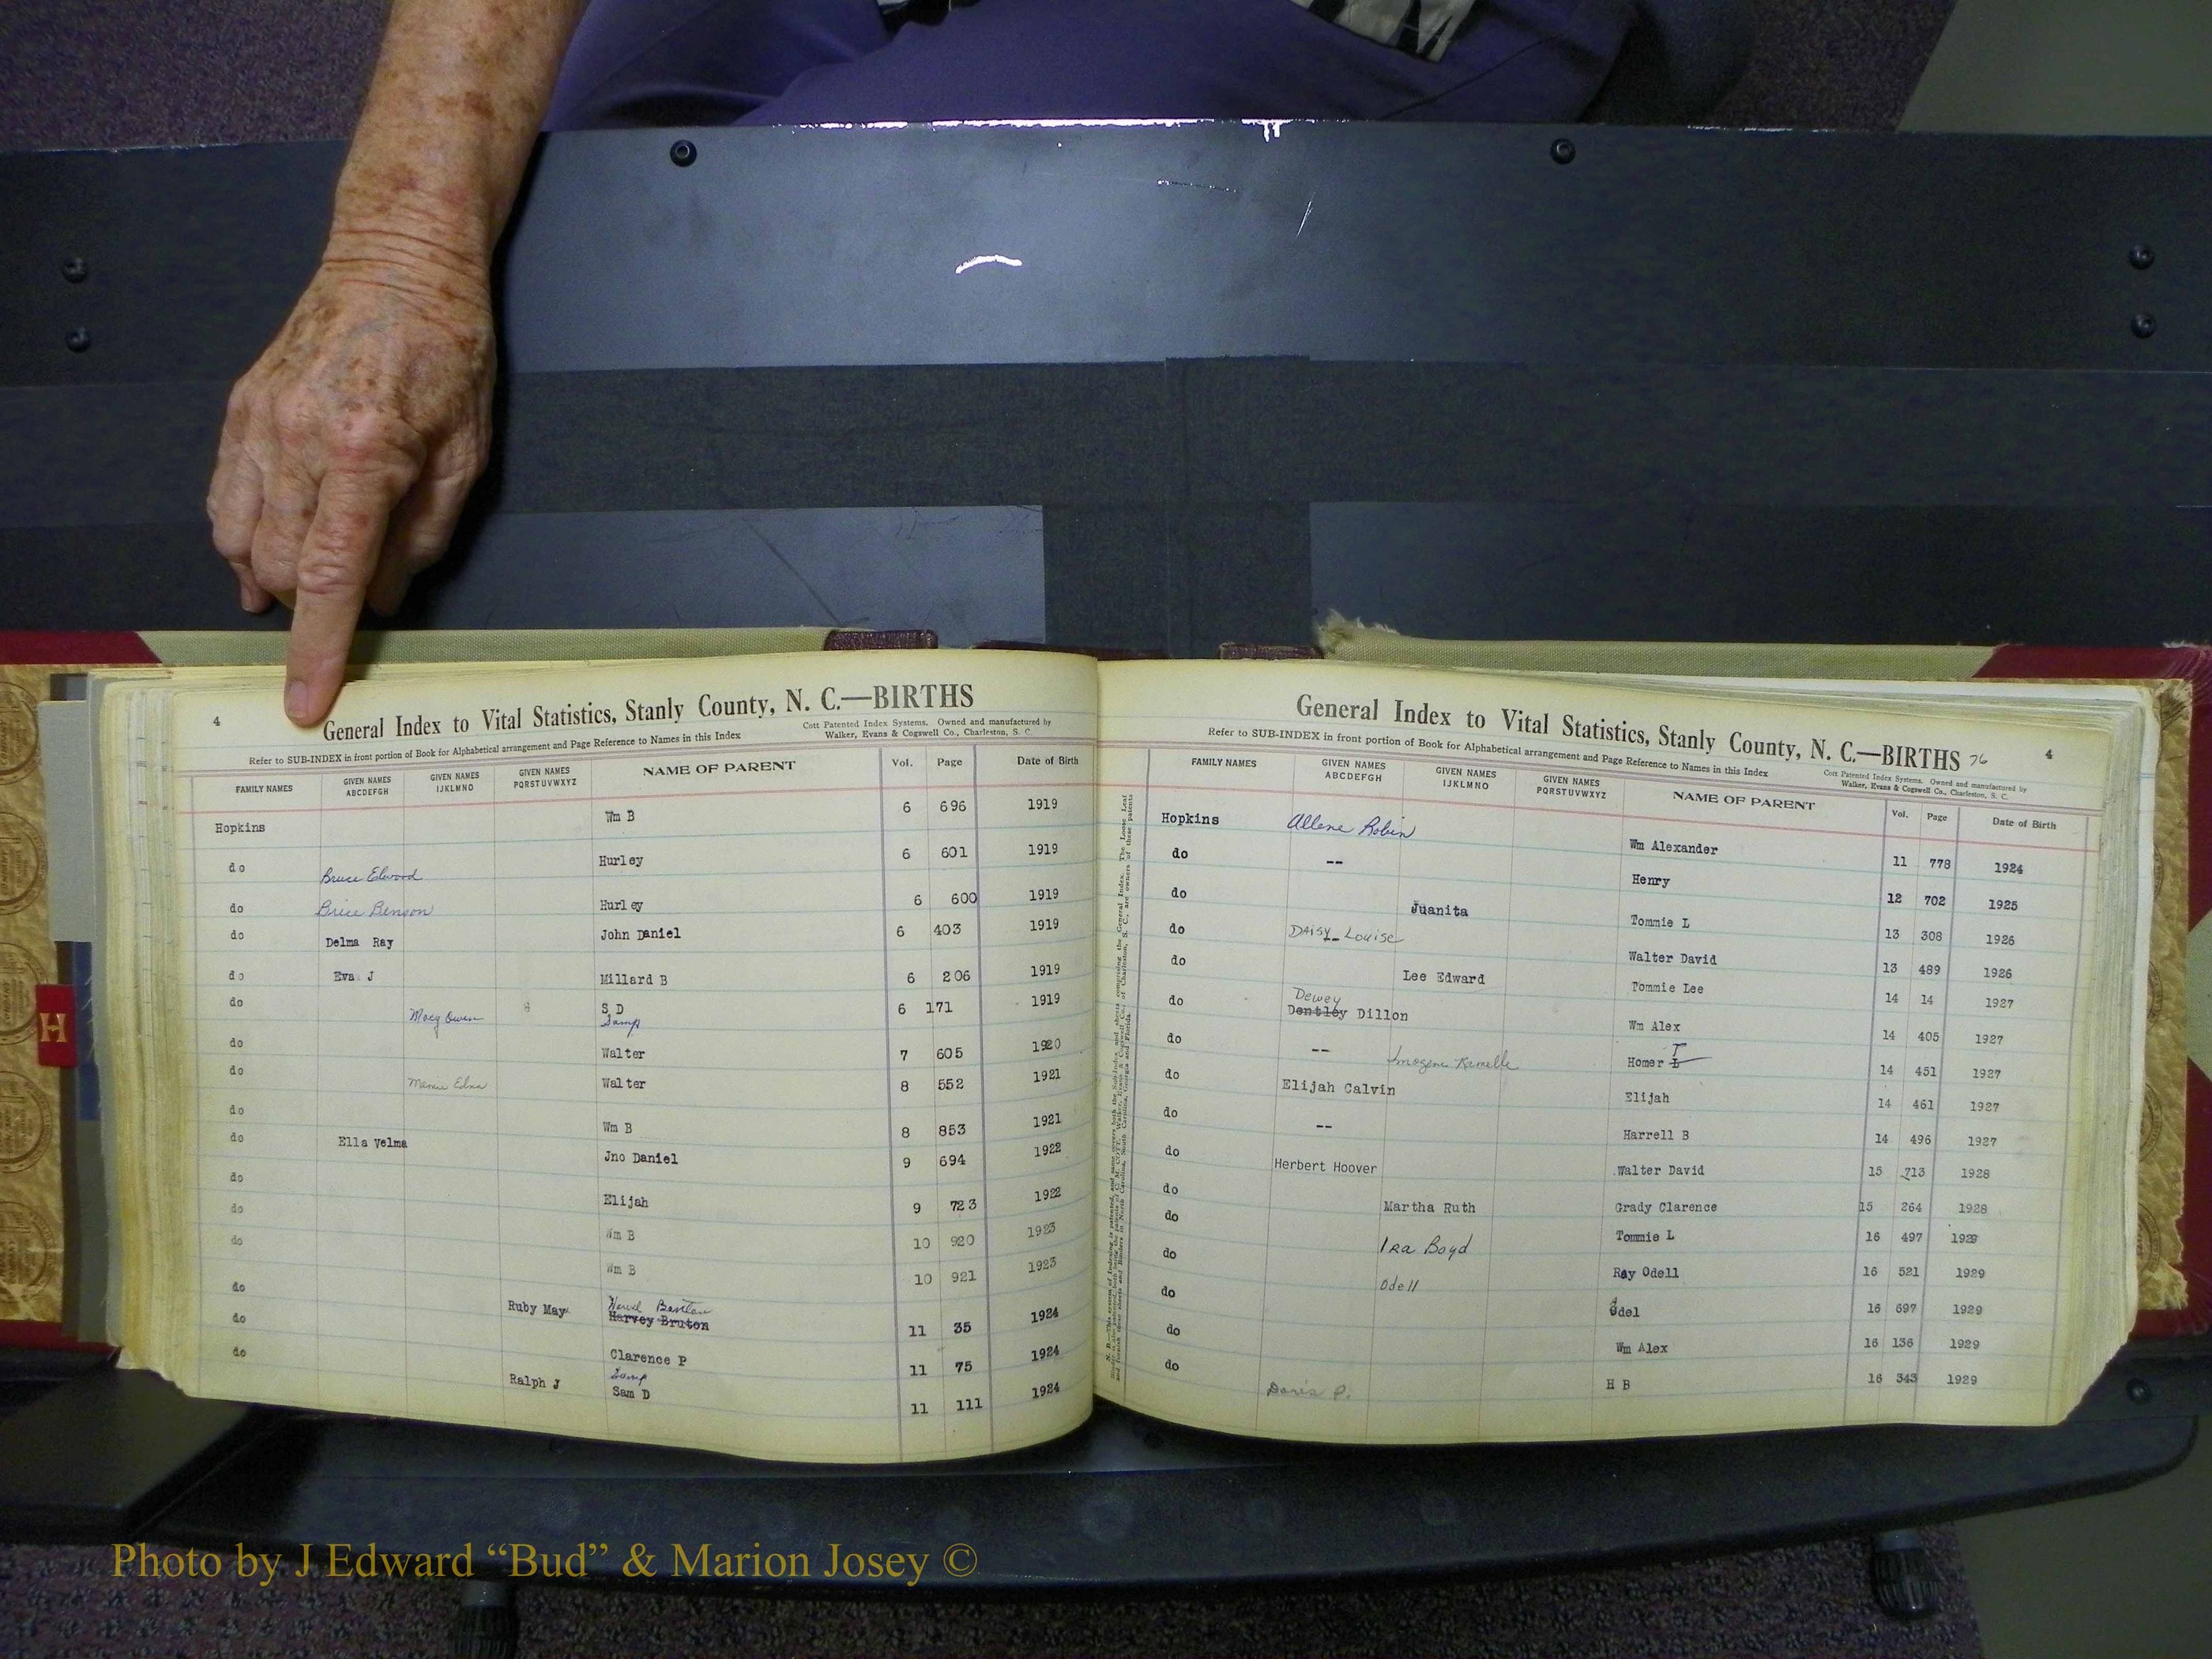 4
General Index to Vital Statistics, Stanly County, N. C.—BIRTHS
Refer to SUB-INDEX in front portion of Book for Alphabetical arrangement and Page Reference to Names in this Index
Cott Patented Index Systems. Owned and manufactured by
Walker, Evans & Cogswell Co., Charleston, S. C.
FAMILY NAMES GIVEN NAMES ABCDEFGH GIVEN NAMES IJKLMNO GIVEN NAMES PQRSTUVWXYZ NAME OF PARENT Vol. Page Date of Birth
Hopkins Wm B 6 696 1919
do Bruce Elwood Hurley 6 601 1919
do Brice Benson Hurley 6 600 1919
do Delma Ray John Daniel 6 403 1919
do Eva J Millard B 6 206 1919
do Macy Owen S D 6 171 1919
Samp
do Walter 7 605 1920
do Mamie Edna Walter 8 552 1921
do Wm B 8 853 1921
do Ella Velma Jno Daniel 9 694 1922
do Elijah 9 723 1922
do Wm B 10 920 1923
do Wm B 10 921 1923
do Ruby May Harvey Bruton 11 35 1924
do Clarence P 11 75 1924
Samp
do Ralph J Sam D 11 111 1924
H
General Index to Vital Statistics, Stanly County, N. C.—BIRTHS 76
4
Refer to SUB-INDEX in front portion of Book for Alphabetical arrangement and Page Reference to Names in this Index
Cott Patented Index Systems. Owned and manufactured by
Walker, Evans & Cogswell Co., Charleston, S. C.
FAMILY NAMES GIVEN NAMES ABCDEFGH GIVEN NAMES IJKLMNO GIVEN NAMES PQRSTUVWXYZ NAME OF PARENT Vol. Page Date of Birth
Hopkins Allene Robin Wm Alexander 11 778 1924
do -- Henry 12 702 1925
do Juanita Tommie L 13 308 1926
do Daisy Louise Walter David 13 489 1926
do Lee Edward Tommie Lee 14 14 1927
Dewey
do Dentley Dillon Wm Alex 14 405 1927
T
do -- Imogene Homer L 14 451 1927
do Elijah Calvin Elijah 14 461 1927
do -- Harrell B 14 496 1927
do Herbert Hoover Walter David 15 713 1928
do Martha Ruth Grady Clarence 15 264 1928
do Ira Boyd Tommie L 16 497 1929
do Odell Ray Odell 16 521 1929
do Odel 16 697 1929
do Wm Alex 16 136 1929
do Doris P. H B 16 343 1929
Photo by J Edward “Bud” & Marion Josey ©